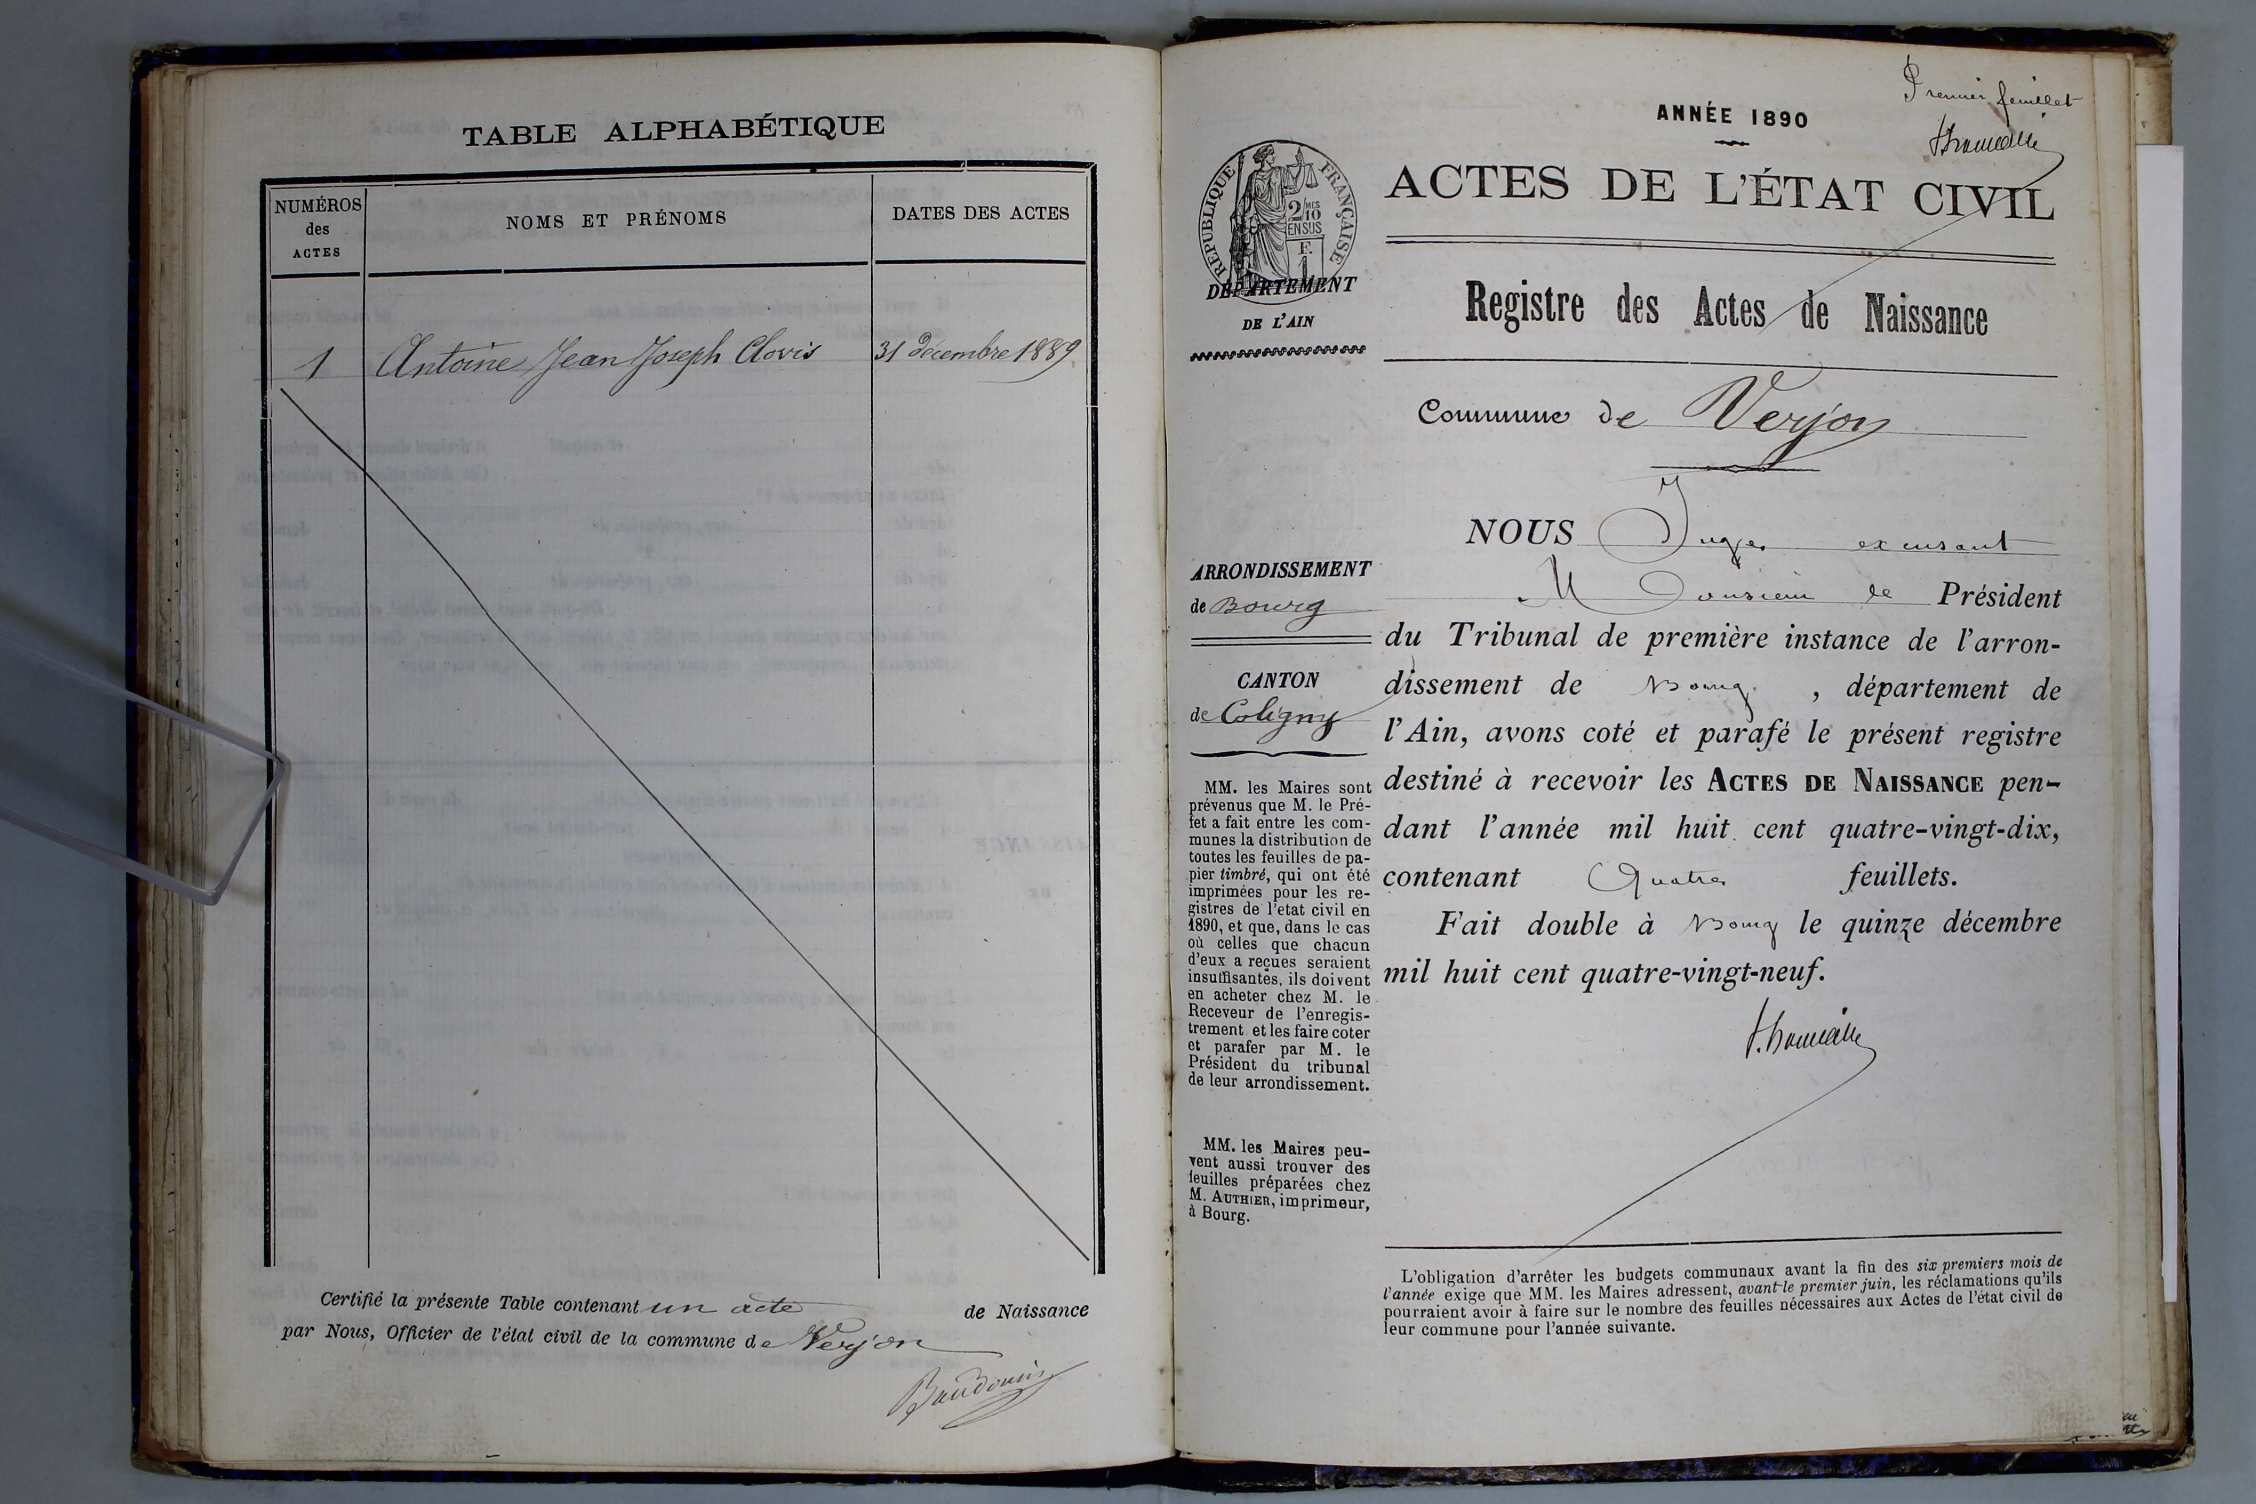 TABLE ALPHABÉTIQUE
NUMÉROS
des
ACTES
NOMS ET PRÉNOMS
DATES DES ACTES
1 Antoine Jean Joseph Clovis 31 décembre 1889
Certifié la présente Table contenant un acte de Naissance
par Nous, Officier de l'état civil de la commune de Verjon
Baudouin
Premier feuillet
ANNÉE 1890
ACTES DE L'ÉTAT CIVIL
RÉPUBLIQUE FRANÇAISE
2/10 MES
EN SUS
F.
1
DÉPARTEMENT
DE L'AIN
Registre des Actes de Naissance
Commune de Verjon
ARRONDISSEMENT
de Bourg
CANTON
de Coligny
MM. les Maires sont
prévenus que M. le Pré-
fet a fait entre les com-
munes la distribution de
toutes les feuilles de pa-
pier timbré, qui ont été
imprimées pour les re-
gistres de l'etat civil en
1890, et que, dans le cas
où celles que chacun
d'eux a reçues seraient
insuffisantes, ils doivent
en acheter chez M. le
Receveur de l'enregis-
trement et les faire coter
et parafer par M. le
Président du tribunal
de leur arrondissement.
MM. les Maires peu-
vent aussi trouver des
feuilles préparées chez
M. AUTHIER, imprimeur,
à Bourg.
NOUS Juge excusant
Monsieur le Président
du Tribunal de première instance de l'arron-
dissement de Bourg, département de
l'Ain, avons coté et parafé le présent registre
destiné à recevoir les ACTES DE NAISSANCE pen-
dant l'année mil huit cent quatre-vingt-dix,
contenant Quatre feuillets.
Fait double à Bourg le quinze décembre
mil huit cent quatre-vingt-neuf.
L'obligation d'arrêter les budgets communaux avant la fin des six premiers mois de
l'année exige que MM. les Maires adressent, avant le premier juin, les réclamations qu'ils
pourraient avoir à faire sur le nombre des feuilles nécessaires aux Actes de l'état civil de
leur commune pour l'année suivante.